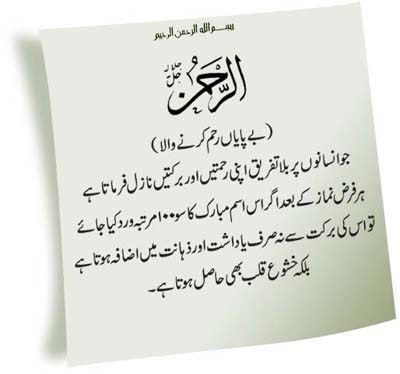 بسم الله الرحمن الرحيم
الرَّحْمٰنُ جل جلالہ
(بے پایاں رحم کرنے والا)
جو انسانوں پر بلا تفریق اپنی رحمتیں اور برکتیں نازل فرماتا ہے
ہر فرض نماز کے بعد اگر اس اسم مبارک کا سو ۱۰۰ مرتبہ ورد کیا جائے
تو اس کی برکت سے نہ صرف یاداشت اور ذہانت میں اضافہ ہوتا ہے
بلکہ خشوع قلب بھی حاصل ہوتا ہے۔